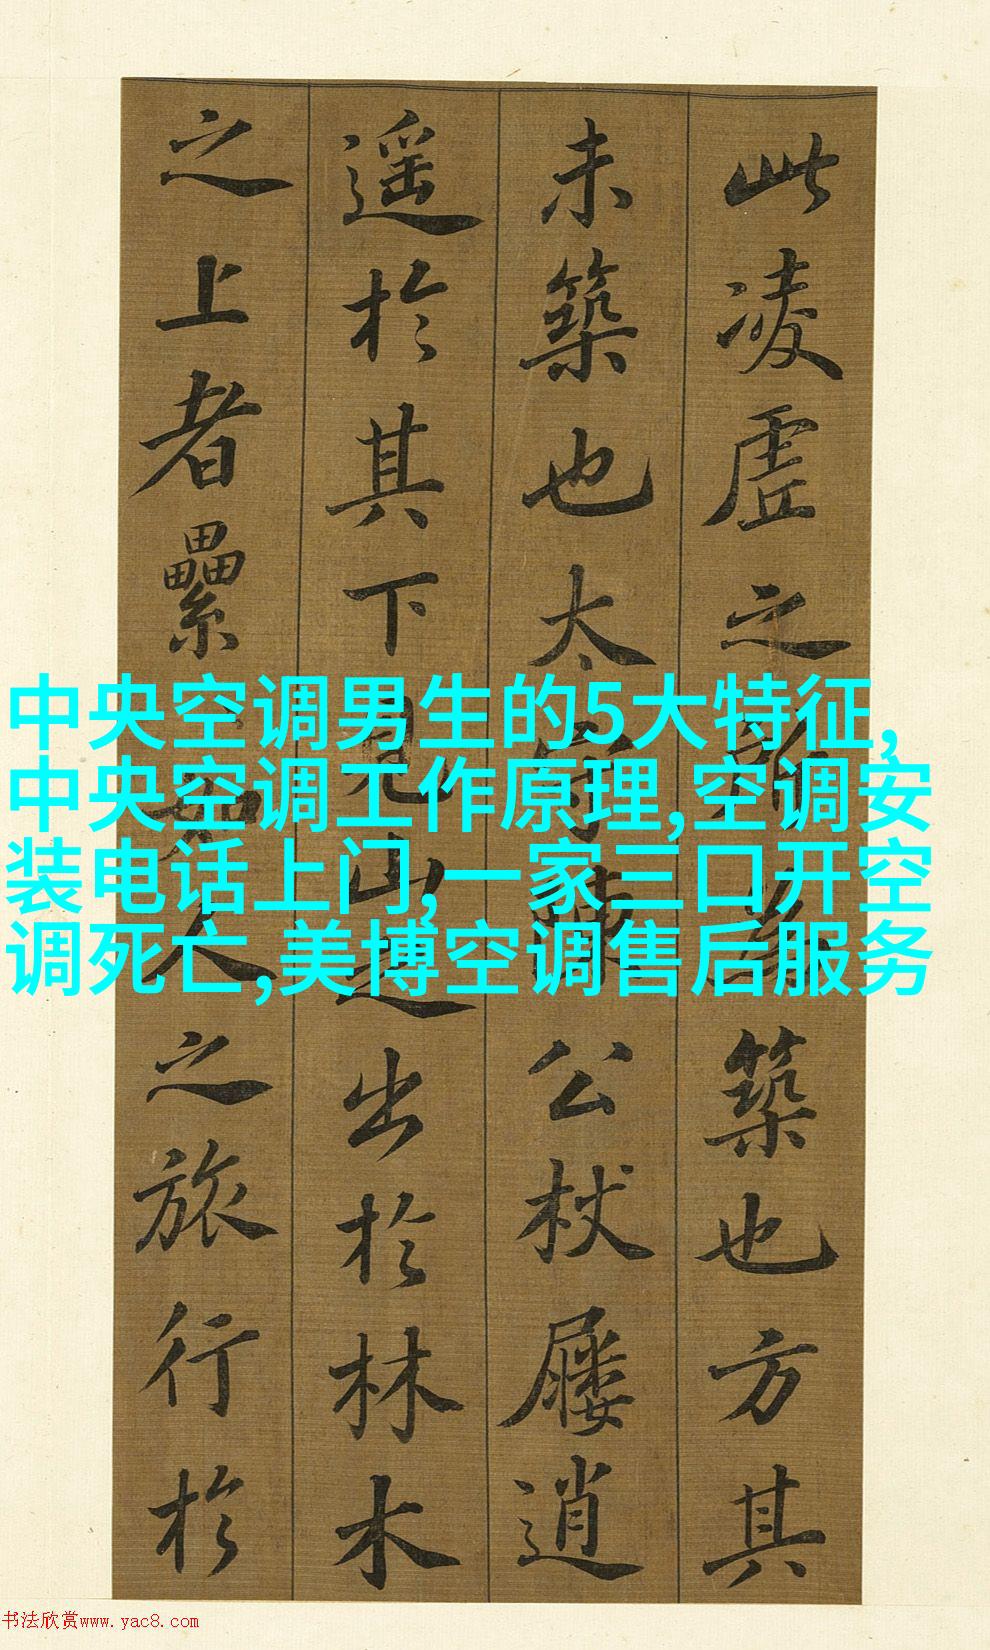 此凌虛之所為築也方其
未築也太守陳公杖屨逍
遥於其下見山之出於林木
之上者纍如人之旅行於
中央空调男生的5大特征,
中央空调工作原理,空调安
装电话上门,一家三口开空
调死亡,美博空调售后服务
书法欣赏www.yac8.com